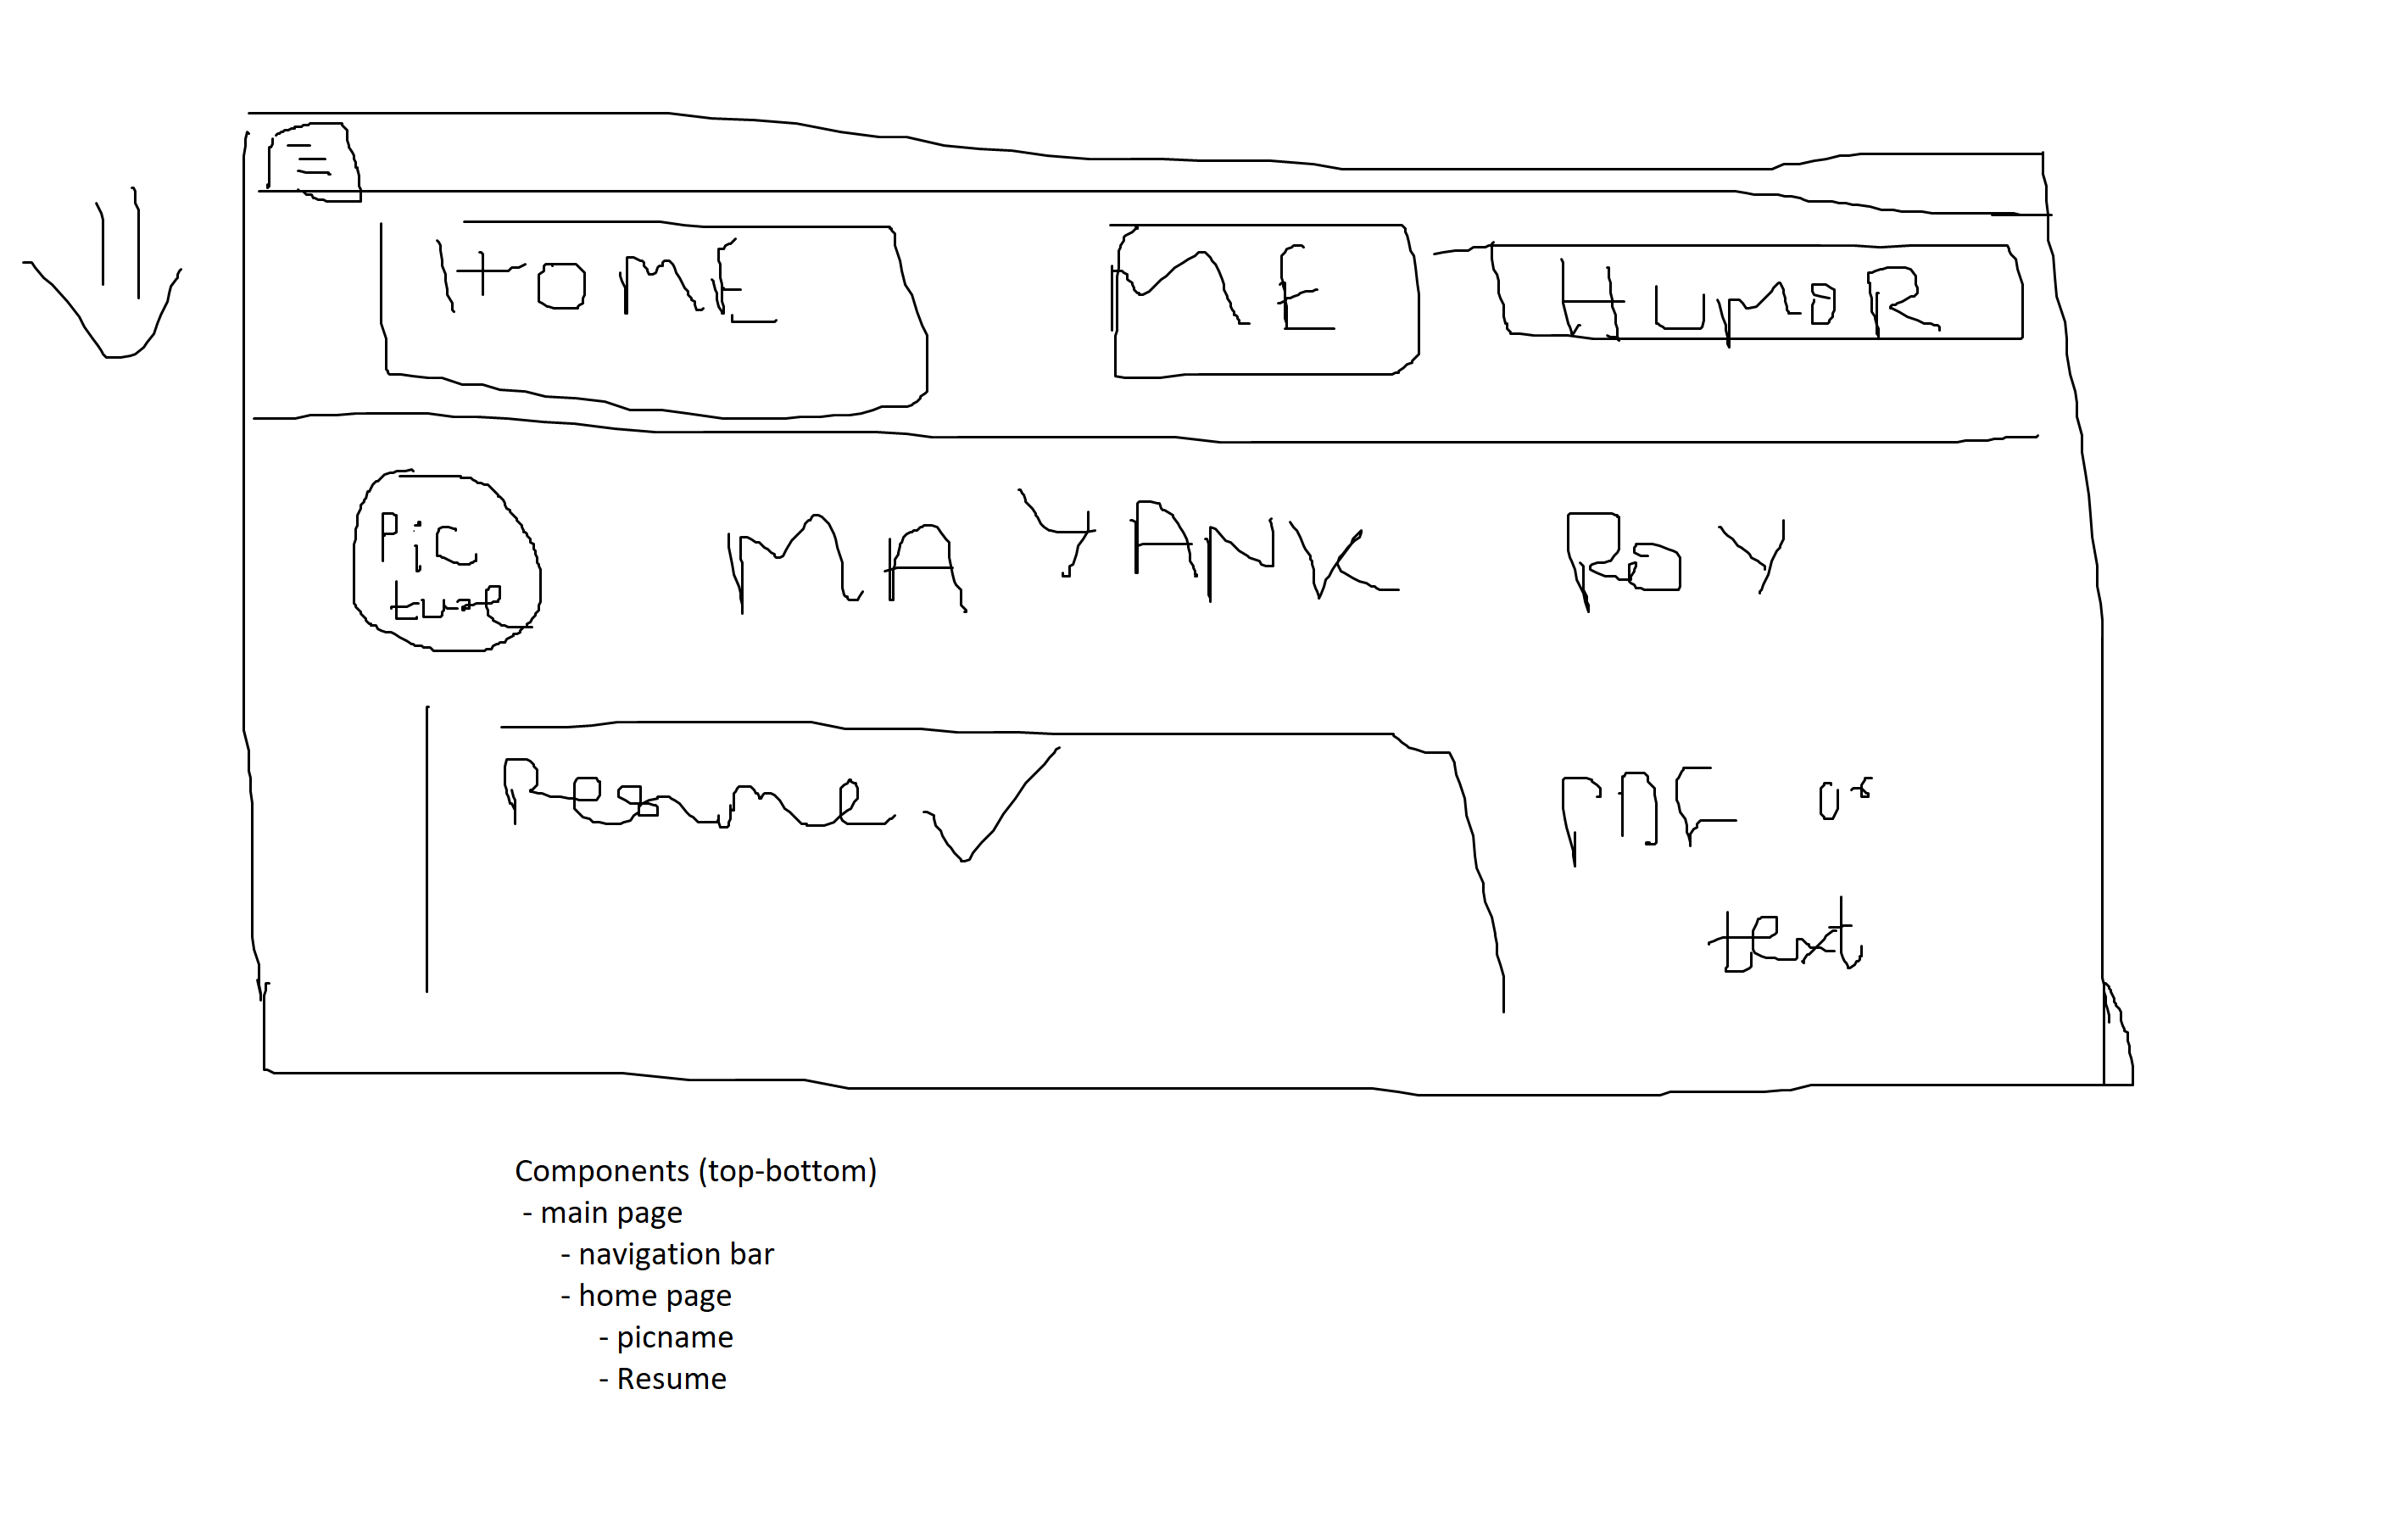 HOME ME HUMOR
Picture MAYANK ROY
Resume or
text
Components (top-bottom)
- main page
- navigation bar
- home page
- picname
- Resume